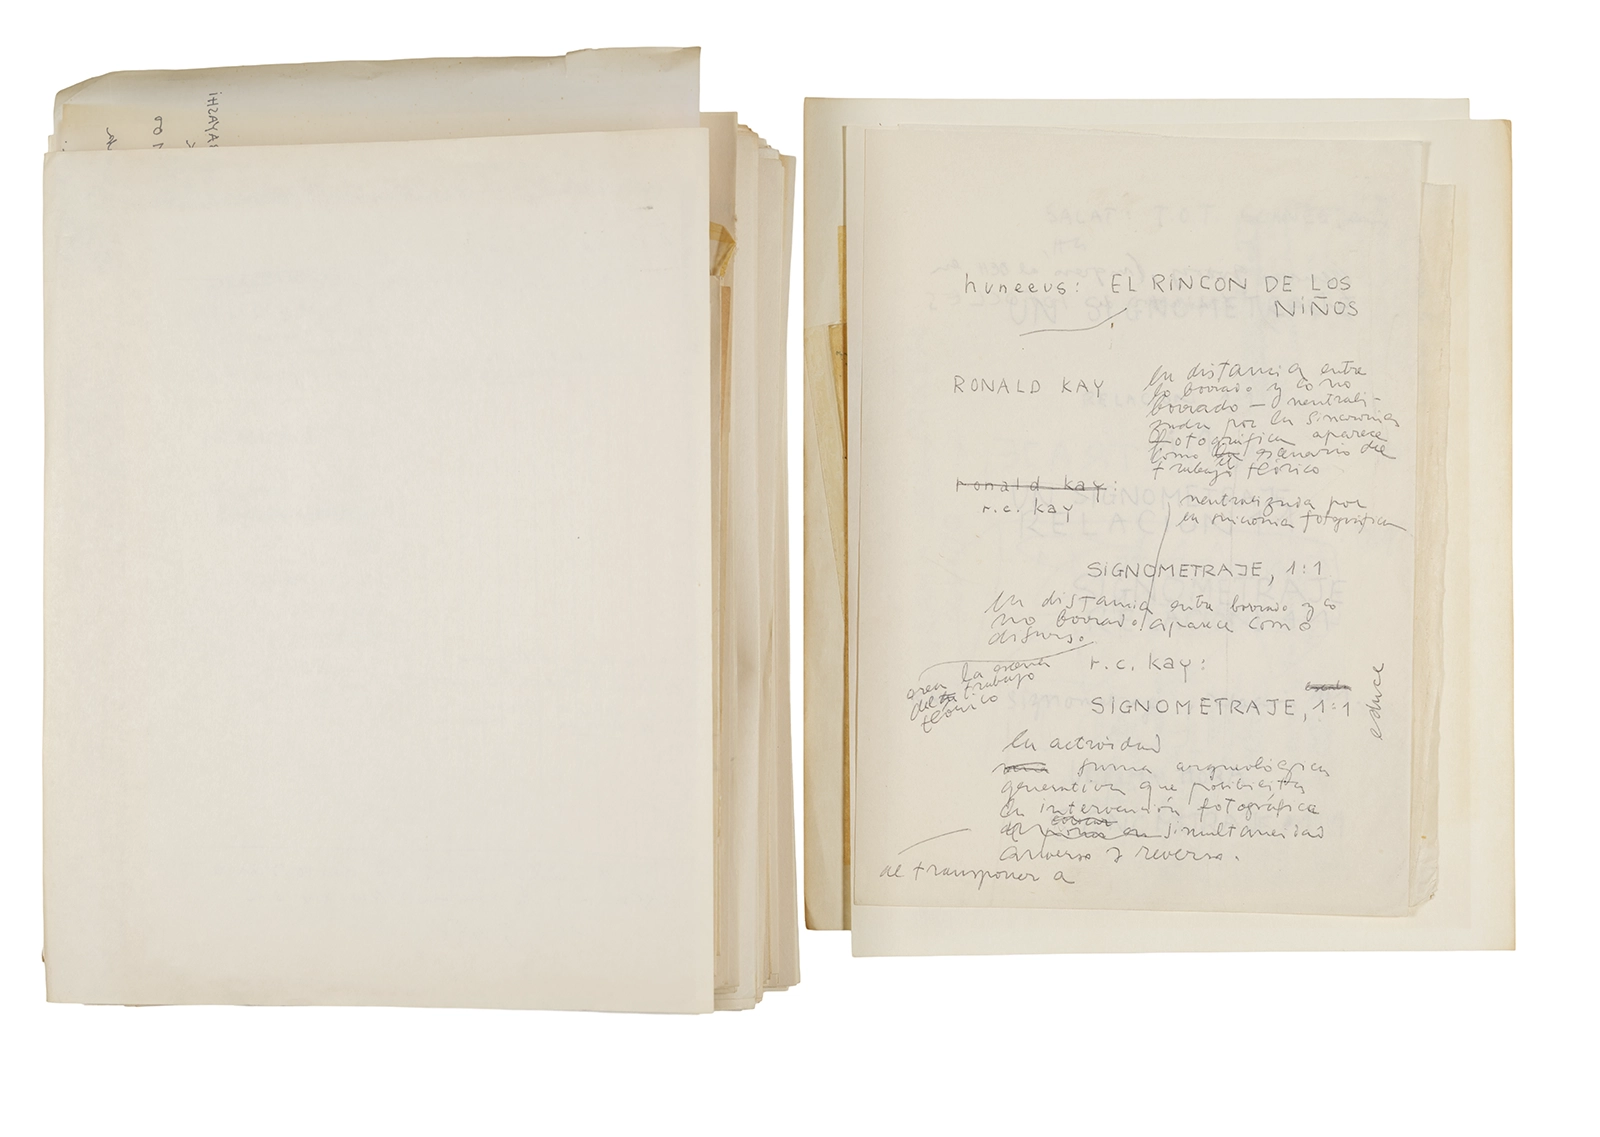 huneeus: EL RINCON DE LOS
NIÑOS
RONALD KAY
la distancia entre
lo borrado y lo no
borrado — neutrali-
zada por la sincronía
fotográfica aparece
como escenario del
trabajo teórico
ronald kay:
r.c. kay
neutralizada por
la sincronía fotográfica
SIGNOMETRAJE, 1:1
la distancia entre borrado y lo
no borrado aparece como
r.c. kay:
area la escena
del trabajo
teórico
SIGNOMETRAJE, 1:1
educe
la actividad
arqueológica
generativa que posibilita
la intervención fotográfica
simultaneidad
anverso y reverso.
al transponer a